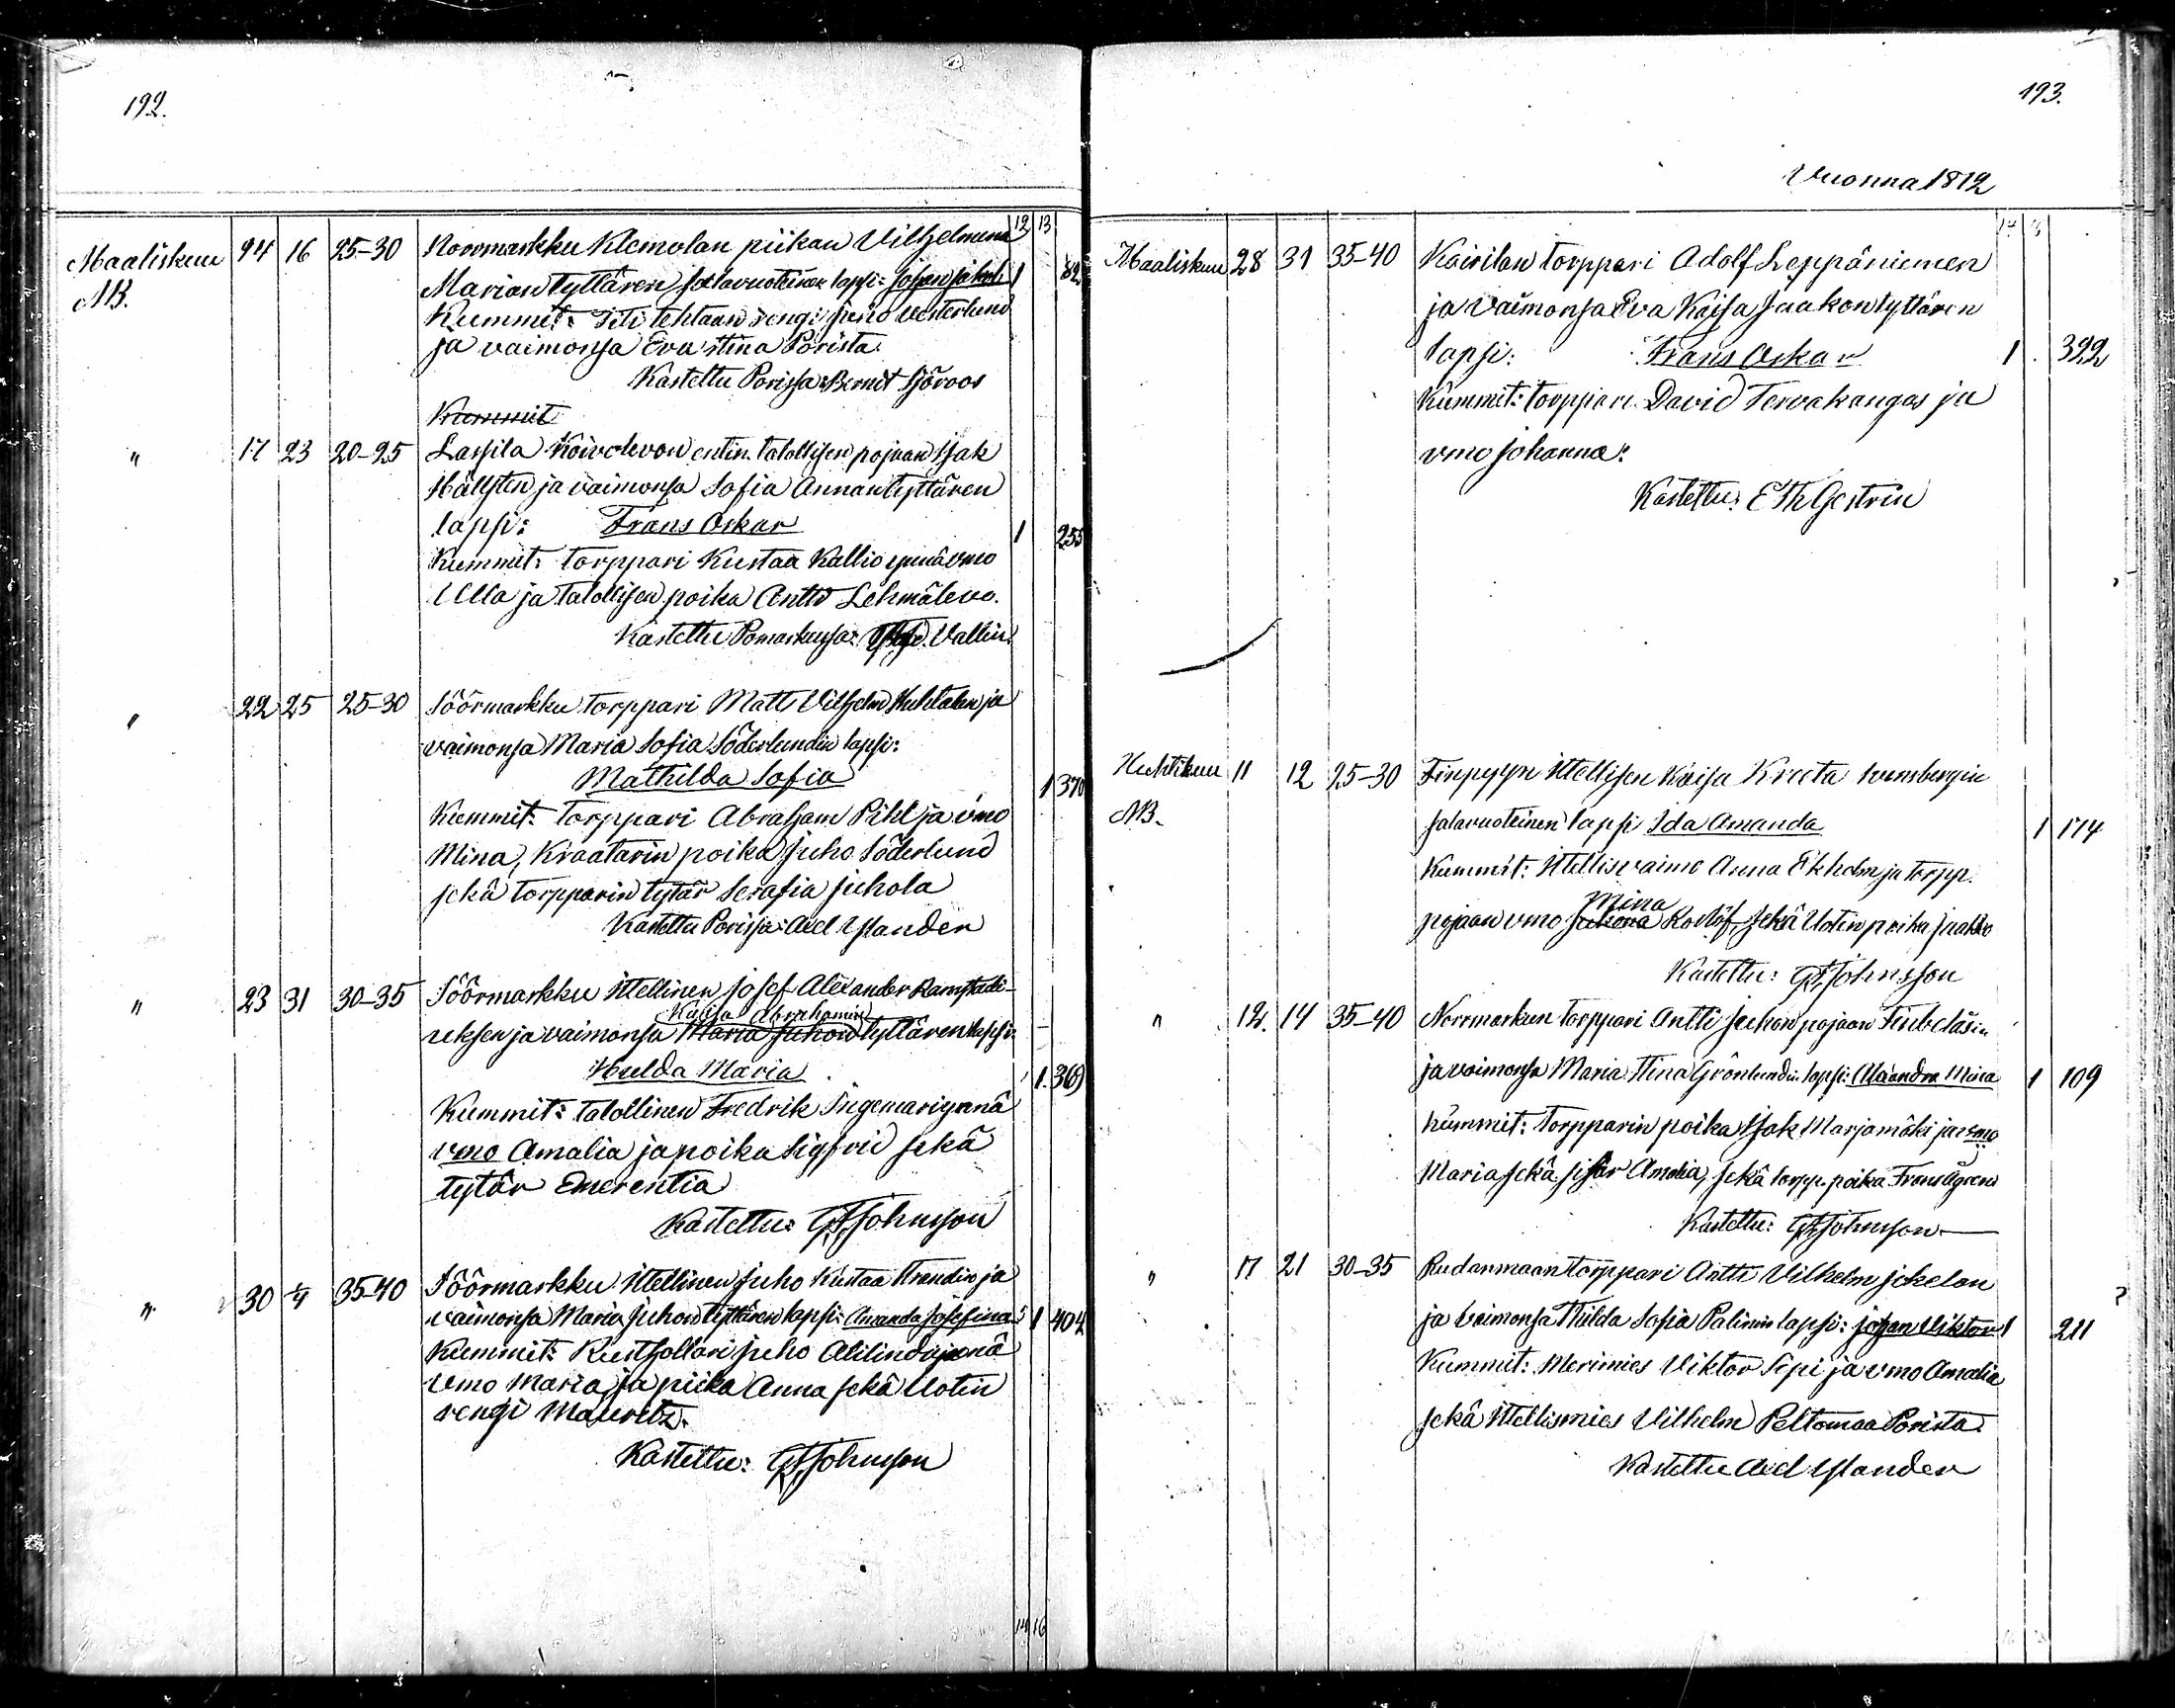 192.
12 13
Maaliskuu 94 16 25-30 Norrmarkku Klemolan piikan Vilhelmina
NB. Marian tyttären salavuoteinen lapsi: Johan Jakob 1 82
Kummit: Siti tehtaan rengi Juho Vesterlund
ja vaimonsa Eva Stina Porista.
Kastettu Porissa: Bernt Sjöroos
Kummit
" 17 23 20-25 Lassila Koivolevon entin. talollisen pojaan Isak
Hällsten ja vaimonsa Sofia Annantyttären
lapsi: Frans Oskar 1 255
Kummit: torppari Kustaa Kallio ynnä vmo
Ulla ja talollisen poika Antti Lehmälevo.
Kastettu Pomarkussa: Vallin.
" 22 25 25-30 Söörmarkku torppari Matt Vilhelm Huhtalan ja
vaimonsa Maria Sofia Söderlundin lapsi:
Mathilda Sofia 1 370
Kummit: torppari Abraham Pihl ja vmo
Mina, Kraatarin poika Juho Söderlund
sekä torpparin tytär Serafia Juhola
Kastettu Porissa: Axel Ylander
" 23 31 30-35 Söörmarkku Itellinen Josef Alexander Ramstedi-
Kaisa Abrahamin
uksen ja vaimonsa Maria Juhon tyttären lapsi:
Hulda Maria 1 369
Kummit: talollinen Fredrik Ingemari ynnä
vmo Amalia ja poika Sigfrid sekä
tytär Emerentia
Kastettu: G F Johnsson
" 30 1/4 35-40 Söörmarkku Itellinen Juho Kustaa Strandin ja
vaimonsa Maria Juhon tyttären lapsi: Amanda Josefina 1 404
Kummit: Rusthollari Juho Alilindi ynnä
vmo Maria ja piika Anna sekä Uotin
rengi Mauritz.
Kastettu: G F Johnsson
14 16
193.
Vuonna 1872
Maaliskuu 28 31 35-40 Kairilan torppari Adolf Leppäniemen
ja vaimonsa Eva Kaisa Jaakontyttären
lapsi: Frans Oskar 1 392
Kummit: torppari David Tervakangas ja
vmo Johanna.
Kastettu: E Th Gestrin
Huhtikuu 11 12 25-30 Finpyyn Itellisen Kaisa Kreeta
NB. salavuoteinen lapsi Ida Amanda 1 174
Kummit: Itellisvaimo Anna Ekholm ja torpp.
Mina
pojaan vmo Juhana sekä Uotin poika Jaakko
Kastettu: G F Johnsson
" 12. 14 35-40 Norrmarkun torppari Antti Juhon pojaan
ja vaimonsa Maria Stina Grönlundin lapsi: Alexandra Mina 1 109
Kummit: Torpparin poika Isak Marjamäki ja vmo
Maria sekä sisär Amalia, sekä torpp. poika Frans
Kastettu: G F Johnsson
" 17 21 30-35 Rudanmaan torppari Antti Vilhelm Jokelan
?
ja vaimonsa Hilda Sofia Palinin lapsi: Johan Viktor 1 211
Kummit: Merimies Viktor Sipi ja vmo Amalia
sekä Itellismies Vilhelm Peltomaa Porista
Kastettu Axel Ylander